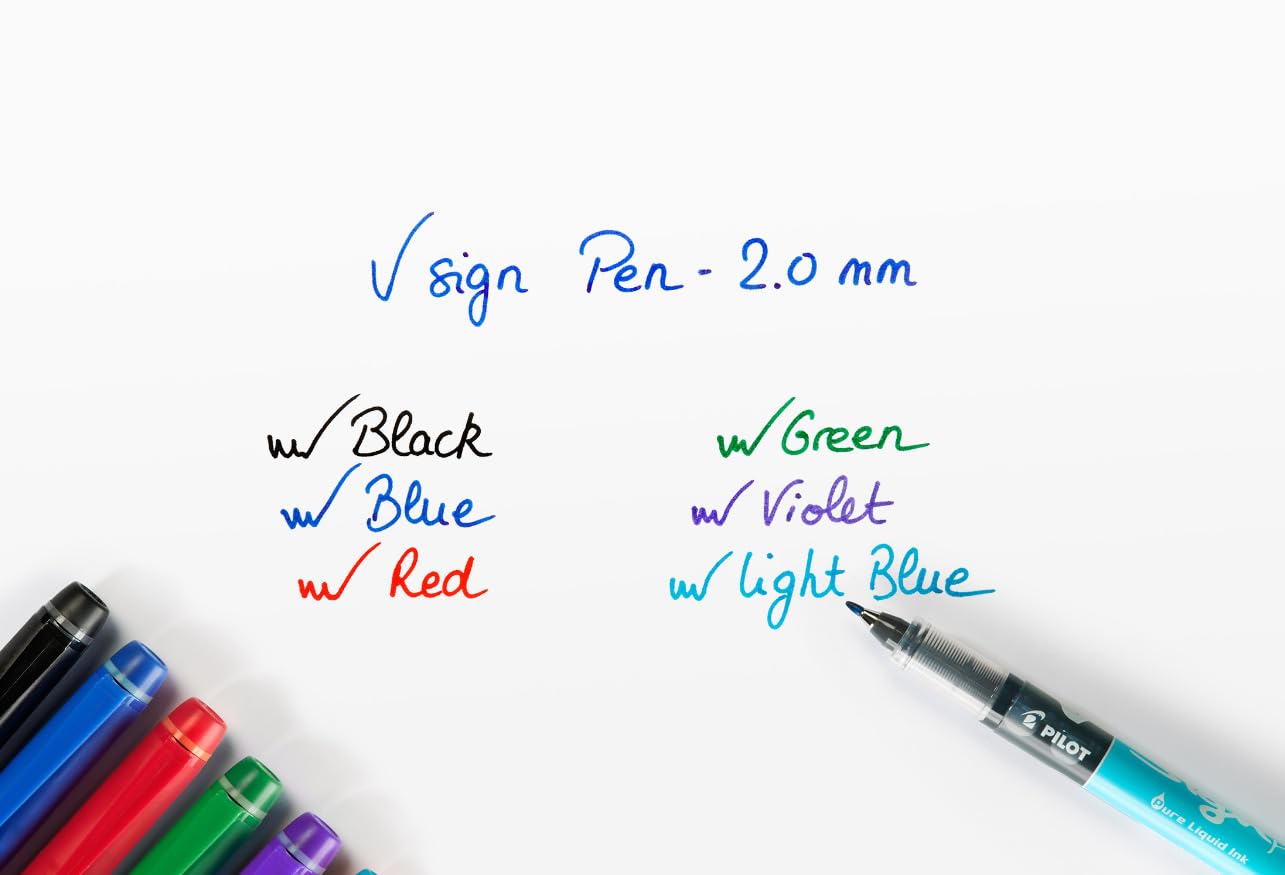 V sign Pen - 2.0 mm
Black
Blue
Red
Green
Violet
light Blue
PILOT
Pure Liquid Ink